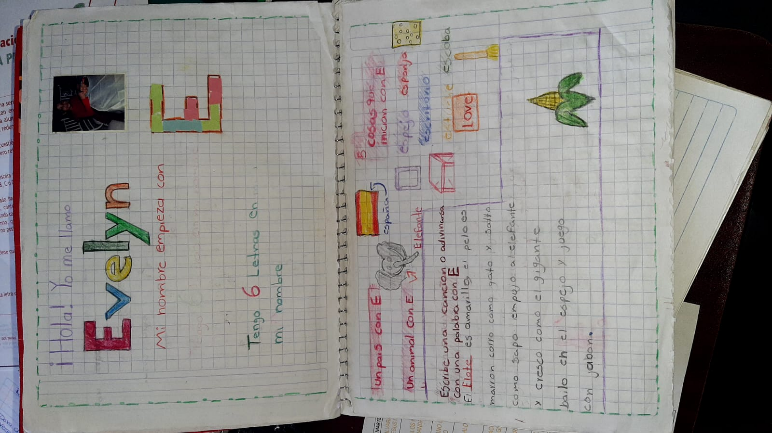 ¡¡Hola! Yo me llamo
Evelyn
Mi nombre empieza con
E
Tengo 6 Letras en
mi nombre
Un pais con E
España
5 cosas que
inician con E
espejo esponja
escritorio
escoba
LOVE
Un animal con E
Elefante
Escribe una cancion o adivinanza
con una palabra con E
El Elote es amarillo, el pelo es
marron corro como gato y salto
como sapo empujo al elefante
y cresco como el gigante
bailo en el espejo y juego
con jabon.